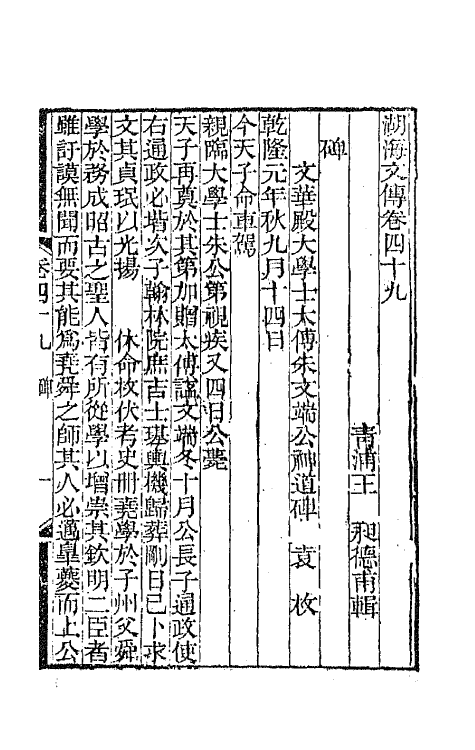 湖海文傳卷四十九
青浦王　昶德甫輯
碑
文華殿大學士太傅朱文端公神道碑　袁　枚
乾隆元年秋九月十四日
今天子命車駕
親臨大學士朱公第視疾又四日公薨
天子再奠於其第加贈太傅謚文端冬十月公長子通政使
右通政必堦次子翰林院庶吉士璂輿機歸葬剛日已卜求
文其貞珉以光揚　　休命枚伏考史冊堯學於子州父舜
學於務成昭古之聖人皆有所從學以增崇其欽明二臣者
雖訏謨無聞而要其能爲堯舜之師其人必邁皐夔而上公
卷四十九　碑　一